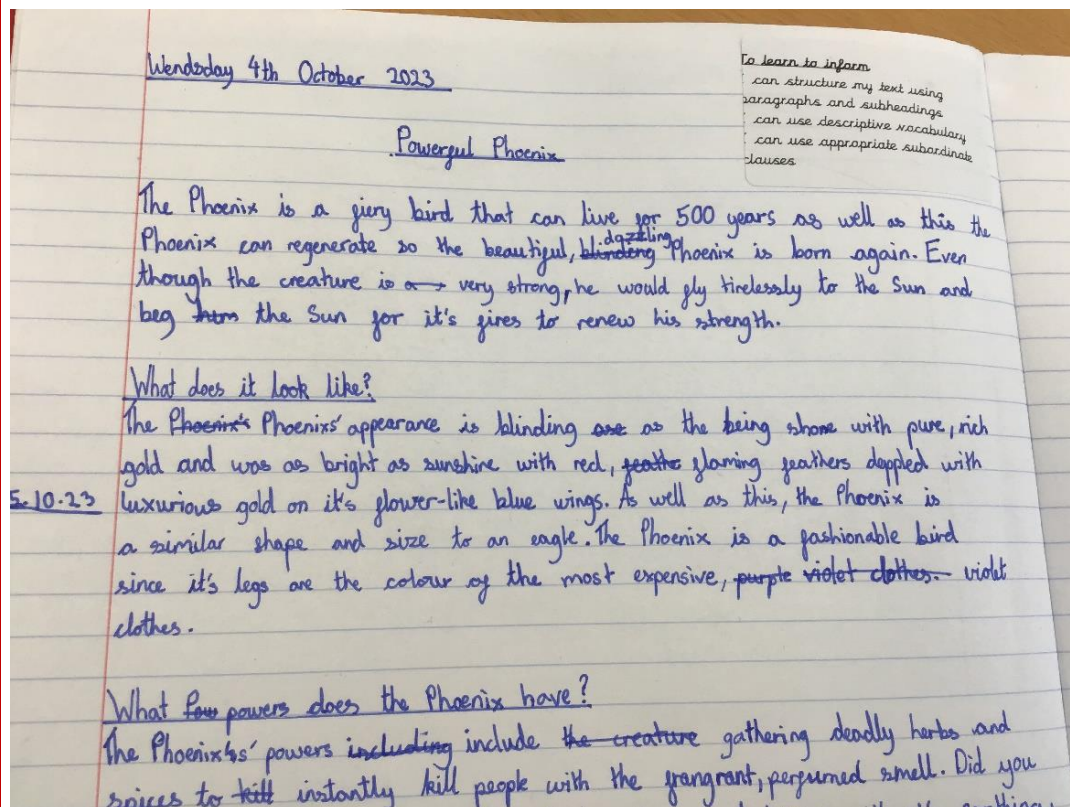 Wendsday 4th October 2023
To learn to inform
can structure my text using
paragraphs and subheadings
can use descriptive vocabulary
can use appropriate subordinate
clauses
Powerful Phoenix
The Phoenix is a fiery bird that can live for 500 years as well as this the
Phoenix can regenerate so the beautiful, blindeng dazzling Phoenix is born again. Even
though the creature is a very strong, he would fly tirelessly to the Sun and
beg the Sun for it's fires to renew his strength.
What does it look like?
The Phoenix's Phoenixs' appearance is blinding ase as the being shone with pure, rich
gold and was as bright as sunshine with red, feathe flaming feathers dappled with
5.10.23
luxurious gold on it's flower-like blue wings. As well as this, the Phoenix is
a similar shape and size to an eagle. The Phoenix is a fashionable bird
since it's legs are the colour of the most expensive, purple violet clothes. violet
clothes.
What powers does the Phoenix have?
The Phoenixs' powers including include the creature gathering deadly herbs and
spices to kill instantly kill people with the frangrant, perfumed smell. Did you